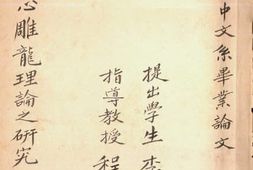 中文系畢業論文
提出學生 李
指導教授 程
心雕龍理論之研究